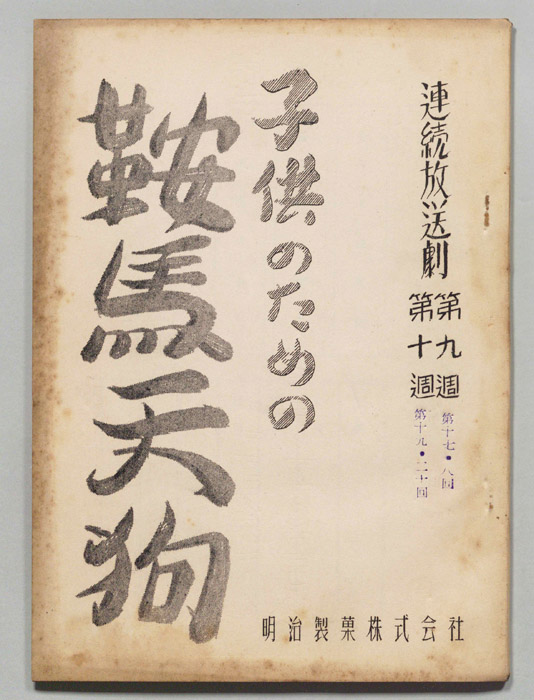 連続放送劇
第九週
第十週
第十七・八回
第十九・二十回
子供のための
鞍馬天狗
明治製菓株式会社